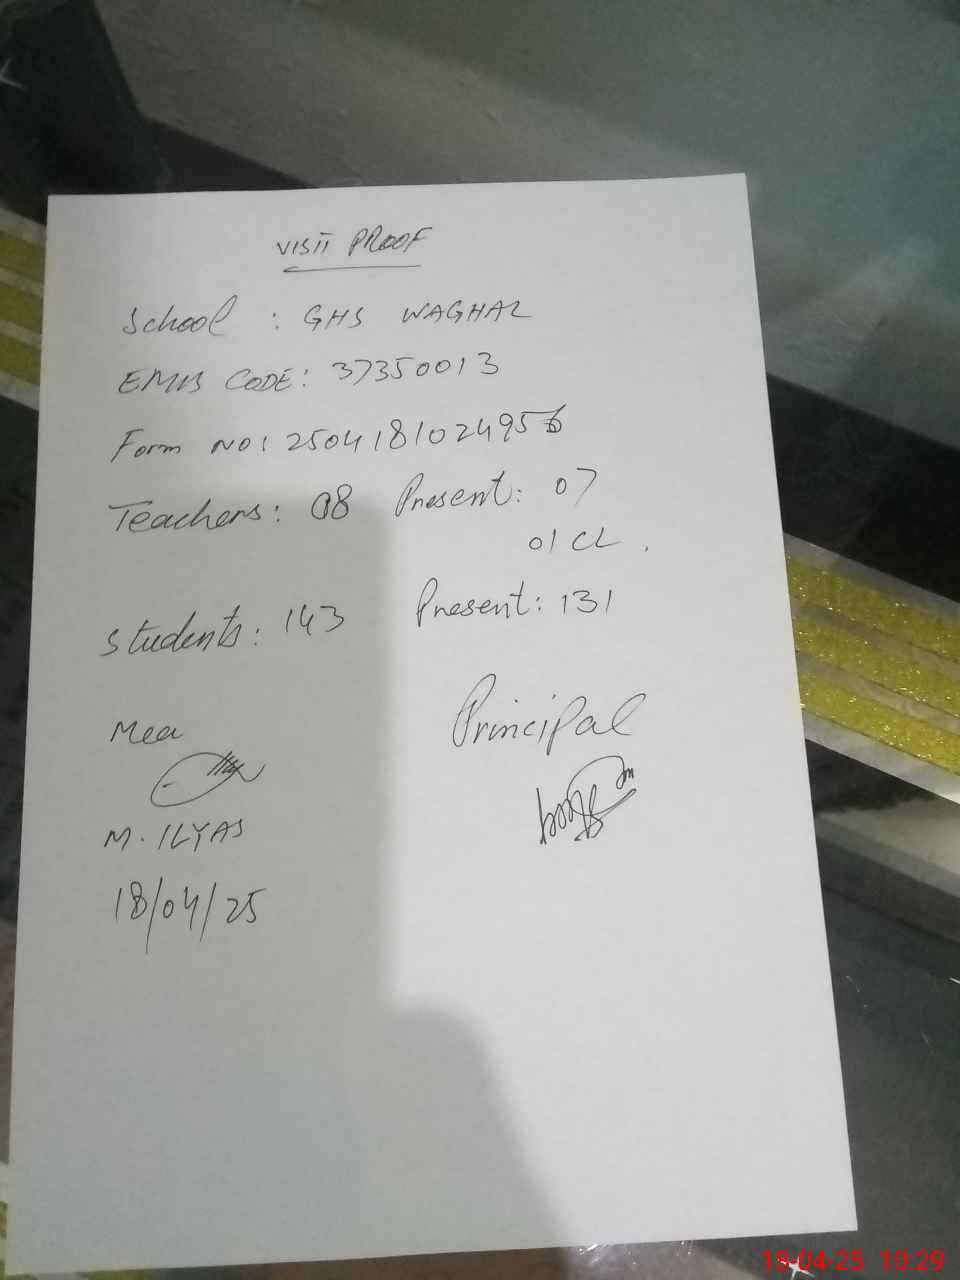 VISIT PROOF
School : GHS WAGHAL
EMIS CODE: 37350013
Form NO: 2504181024956
Teachers: 08 Present: 07
01 CL.
Students: 143 Present: 131
Mea Principal
M. ILYAS
18/04/25
18-04-25 10:29